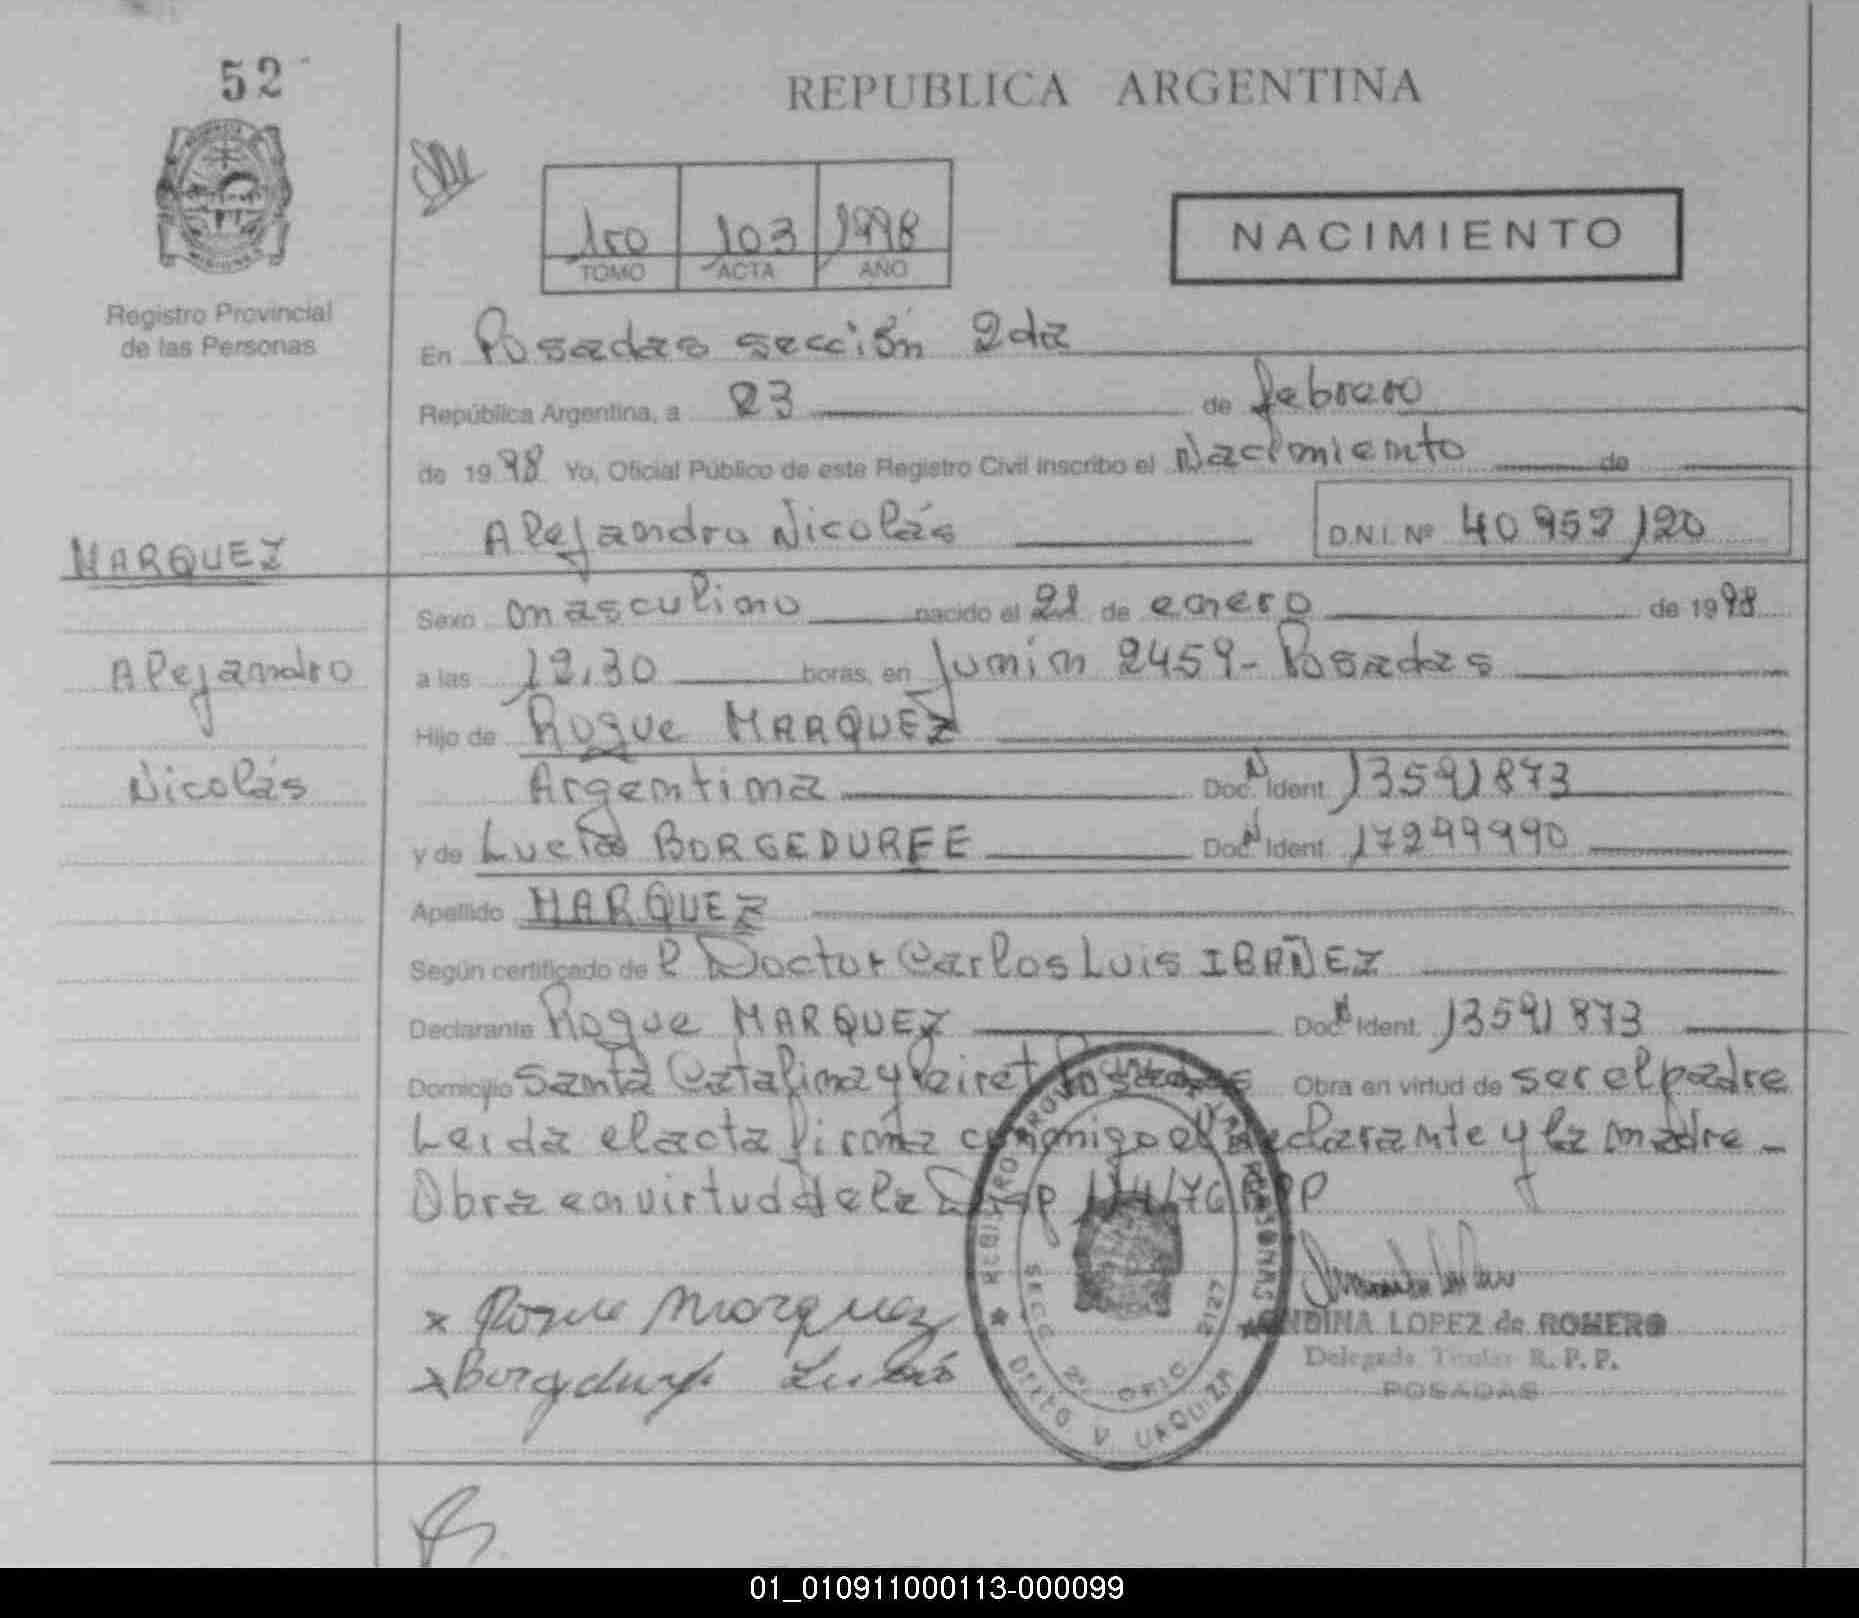 52
REPUBLICA ARGENTINA
1ro 103 1998
TOMO ACTA AÑO
NACIMIENTO
Registro Provincial
de las Personas
En Posadas sección 2da
República Argentina, a 23 de febrero
de 1998 Yo, Oficial Público de este Registro Civil inscribo el Nacimiento de
Alejandro Nicolás D.N.I. Nº 40 952 120
MARQUEZ
Sexo masculino nacido el 21 de enero de 1998
Alejandro
a las 12.30 horas, en Junin 2459 - Posadas
Hijo de Roque MARQUEZ
Nicolás
Argentina Doc. N Ident. 13591873
y de Lucia BORGEDUREE Doc. N Ident. 17299990
Apellido MARQUEZ
Según certificado de l Doctor Carlos Luis IBAÑEZ
Declarante Roque MARQUEZ Doc. N Ident. 13591873
Domicilio Santa Catalina y Posadas Obra en virtud de ser el padre
Leida el acta firma conmigo el declarante y la madre -
Obra en virtud de la Disp
x Roque Marquez
x
REGISTRO PROVINCIAL DE LAS PERSONAS
SECC. 2ª OFIC. 2127
DPTO V URQUIZA
ONDINA LOPEZ de ROMERO
Delegada Titular R.P.P.
POSADAS
01_010911000113-000099